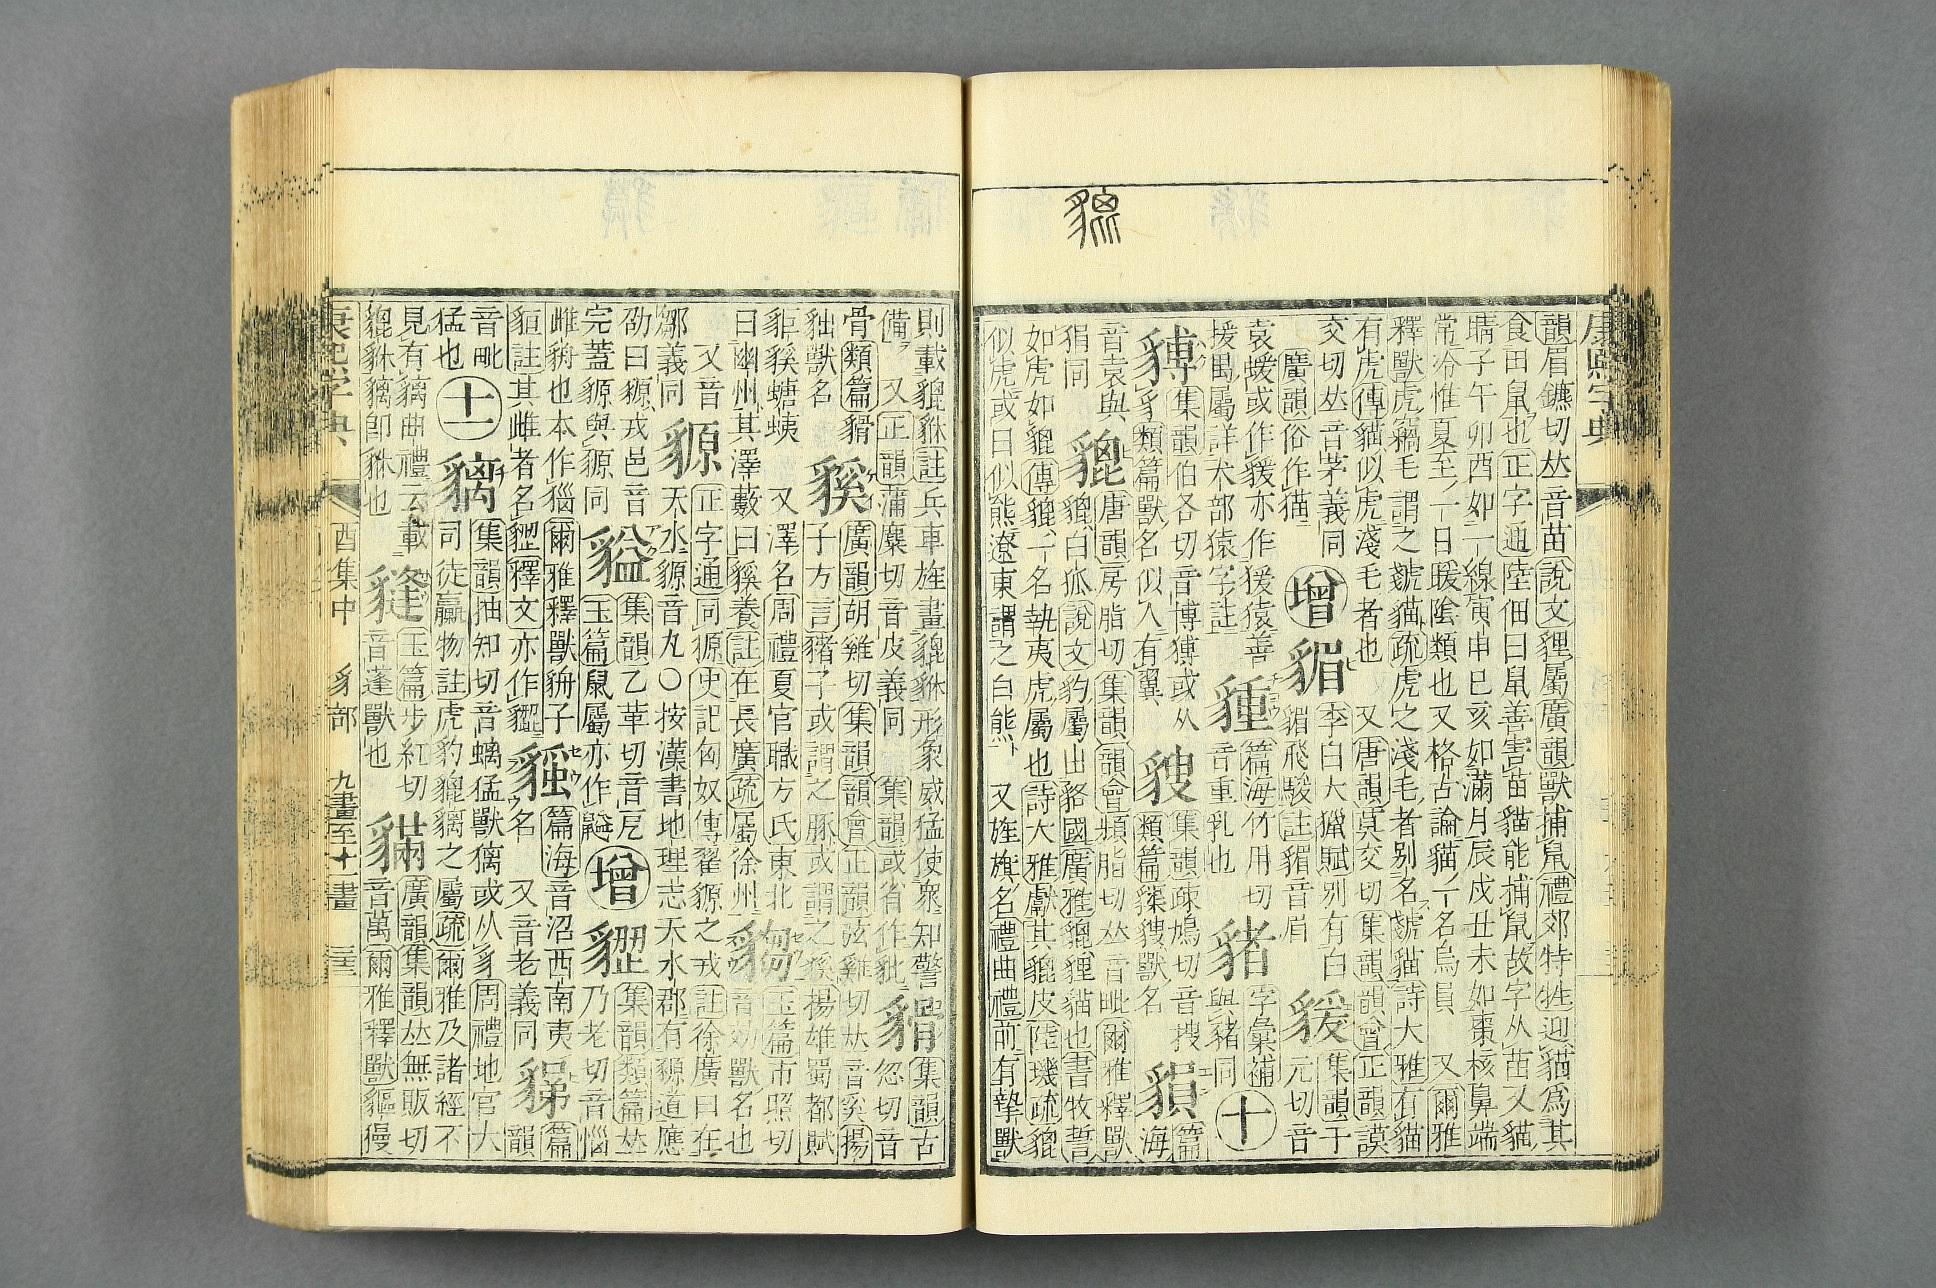 康熙字典
韻眉鑣切𠀤音苗說文貍屬廣韻獸捕鼠禮郊特牲迎貓爲其
食田鼠也正字通陸佃曰鼠善害苗貓能捕鼠故字从苗又貓
睛子午卯酉如一線寅申巳亥如滿月辰戌丑未如棗核鼻端
常冷惟夏至一日暖陰類也又格古論貓一名烏員 又爾雅
釋獸虎竊毛謂之虦貓疏虎之淺毛者别名虦貓詩大雅有貓
有虎傳貓似虎淺毛者也 又唐韻莫交切集韻韻會正韻謨
交切𠀤音茅義同
廣韻俗作猫
增
李白大獵賦别有白
飛駿註 音眉
集韻于
元切音
袁蝯或作 亦作猨猿善
援禺屬詳犬部猿字註
篇海竹用切
音重乳也
字彙補
與豬同
十
集韻伯各切音博猼或从
豸類篇獸名似人有翼
集韻疎鳩切音搜
類篇 獸名
篇
海
音袁與
狷同
貔
唐韻房脂切集韻韻會頻脂切𠀤音毗爾雅釋獸
貔白狐說文豹屬出貉國廣雅貔貍貓也書牧誓
如虎如貔傳貔一名執夷虎屬也詩大雅獻其貔皮陸璣疏貔
似虎或曰似熊遼東謂之白熊 又旌旗名禮曲禮前有摯獸
則載貔貅註兵車旌畫貔貅形象威猛使衆知警
備 又正韻蒲麋切音皮義同 集韻或省作豼
集韻古
忽切音
骨類篇
貀獸名
貕
廣韻胡雞切集韻韻會正韻弦雞切𠀤音奚揚
子方言豬子或謂之豚或謂之貕揚雄蜀都賦
貕螗蛦 又澤名周禮夏官職方氏東北
曰幽州其澤藪曰貕養註在長廣疏屬徐州
玉篇市照切
音効獸名也
又音
義同
豲
正字通同 史記匈奴傳翟豲之戎註徐廣曰在
天水豲音丸○按漢書地理志天水郡有豲道應
劭曰豲戎邑音
完蓋 與豲同
集韻乙革切音戹
玉篇鼠屬亦作
增
集韻類篇𠀤
乃老切音惱
雌 也本作 爾雅釋獸 子
貆註其雌者名 釋文亦作
篇海音沼西南夷
名 又音老義同
篇
韻
音毗
猛也
十一
集韻抽知切音螭猛獸 或从豸周禮地官大
司徒臝物註虎豹貔 之屬疏爾雅及諸經不
見有 曲禮云載
貔貅 卽貅也
玉篇步紅切
音蓬獸也
廣韻集韻𠀤無販切
音萬爾雅釋獸貙獌
康熙字典 酉集中 豸部 九畫至十一畫